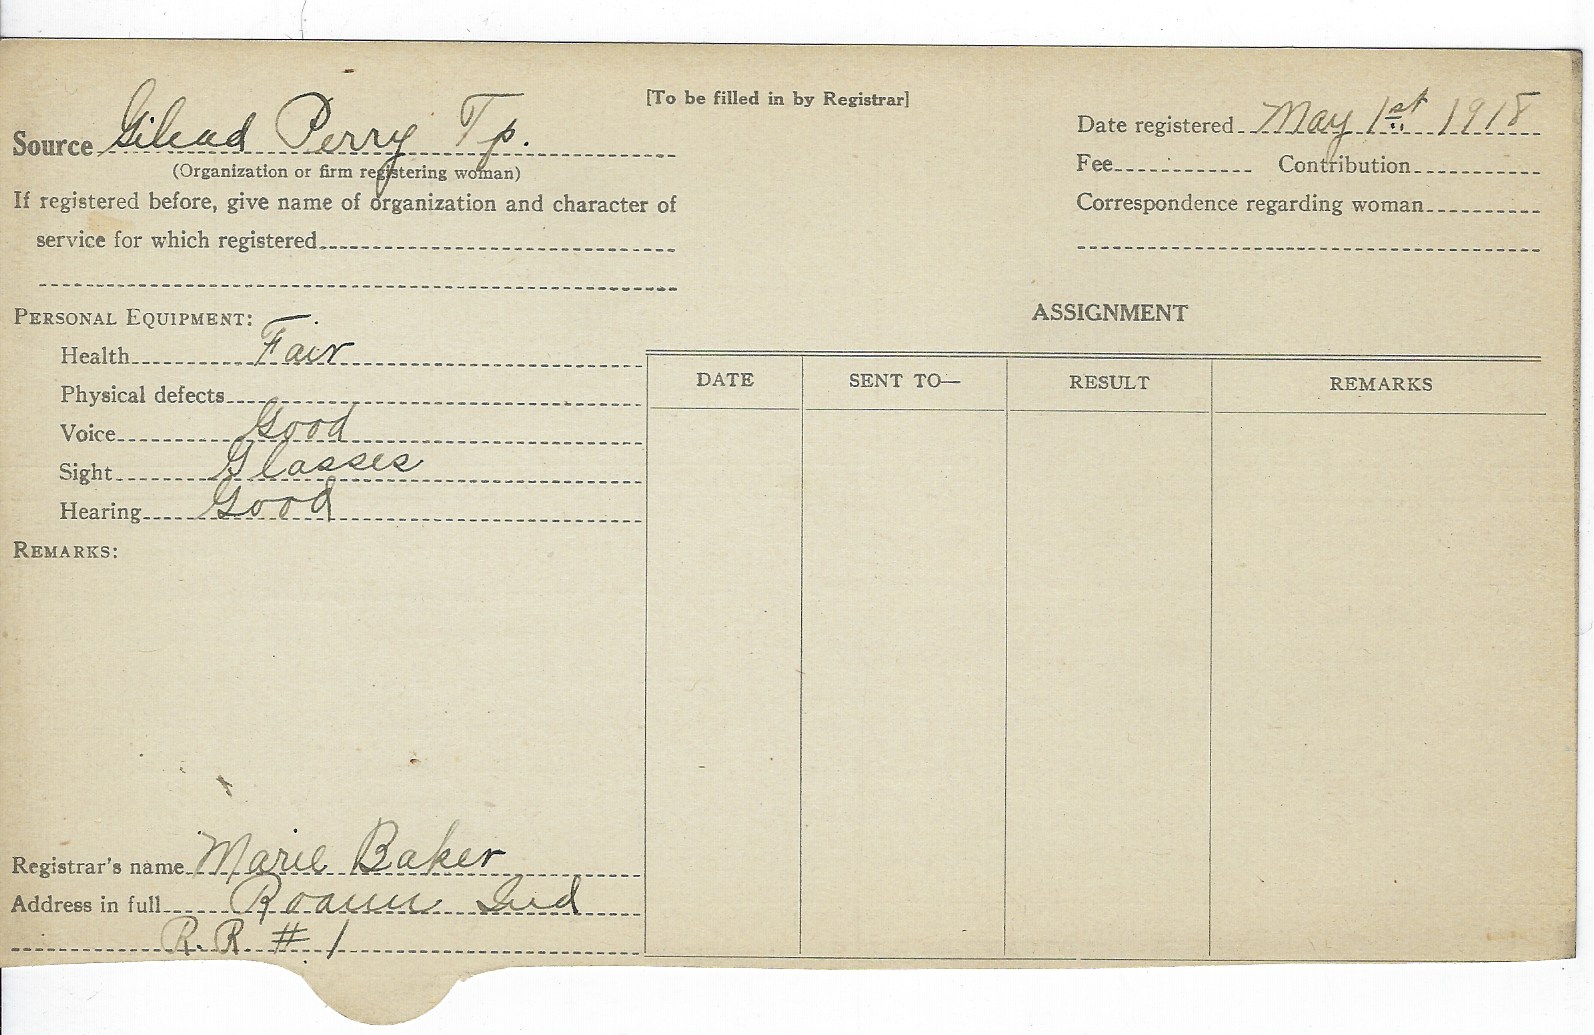 [To be filled in by Registrar]
Source Gilead Perry Tp.
(Organization or firm registering woman)
If registered before, give name of organization and character of
service for which registered
Date registered May 1st 1918
Fee Contribution
Correspondence regarding woman
PERSONAL EQUIPMENT:
Health Fair
Physical defects
Voice Good
Sight Glasses
Hearing Good
REMARKS:
Registrar's name Marie Baker
Address in full Roann Ind
R.R. # 1
ASSIGNMENT
DATE SENT TO— RESULT REMARKS